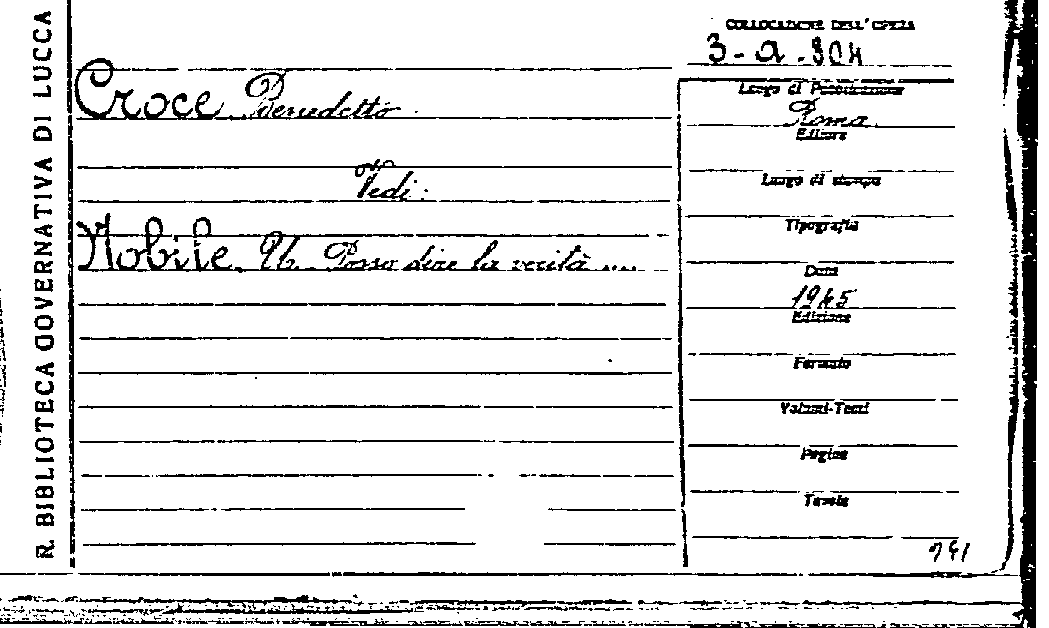 R. BIBLIOTECA GOVERNATIVA DI LUCCA
COLLOCAZIONE DELL'OPERA
3-a-904
Croce Benedetto
Vedi:
Nobile. U. Posso dire la verità ....
Luogo di Pubblicazione
Roma
Editore
Luogo di stampa
Tipografia
Data
1945
Edizione
Formato
Volumi-Tomi
Pagine
Tavole